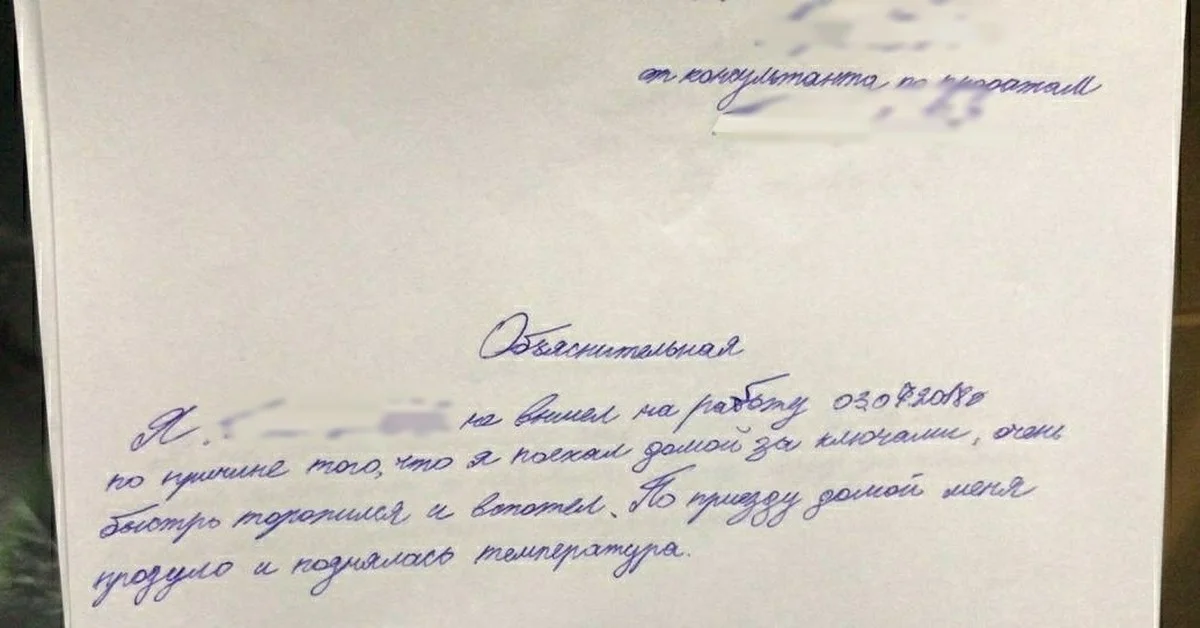 от консультанта по продажам
Объяснительная
Я, не вышел на работу 03.07.2018г
по причине того, что я поехал домой за ключами, очень
быстро торопился и вспотел. По приезду домой меня
продуло и поднялась температура.